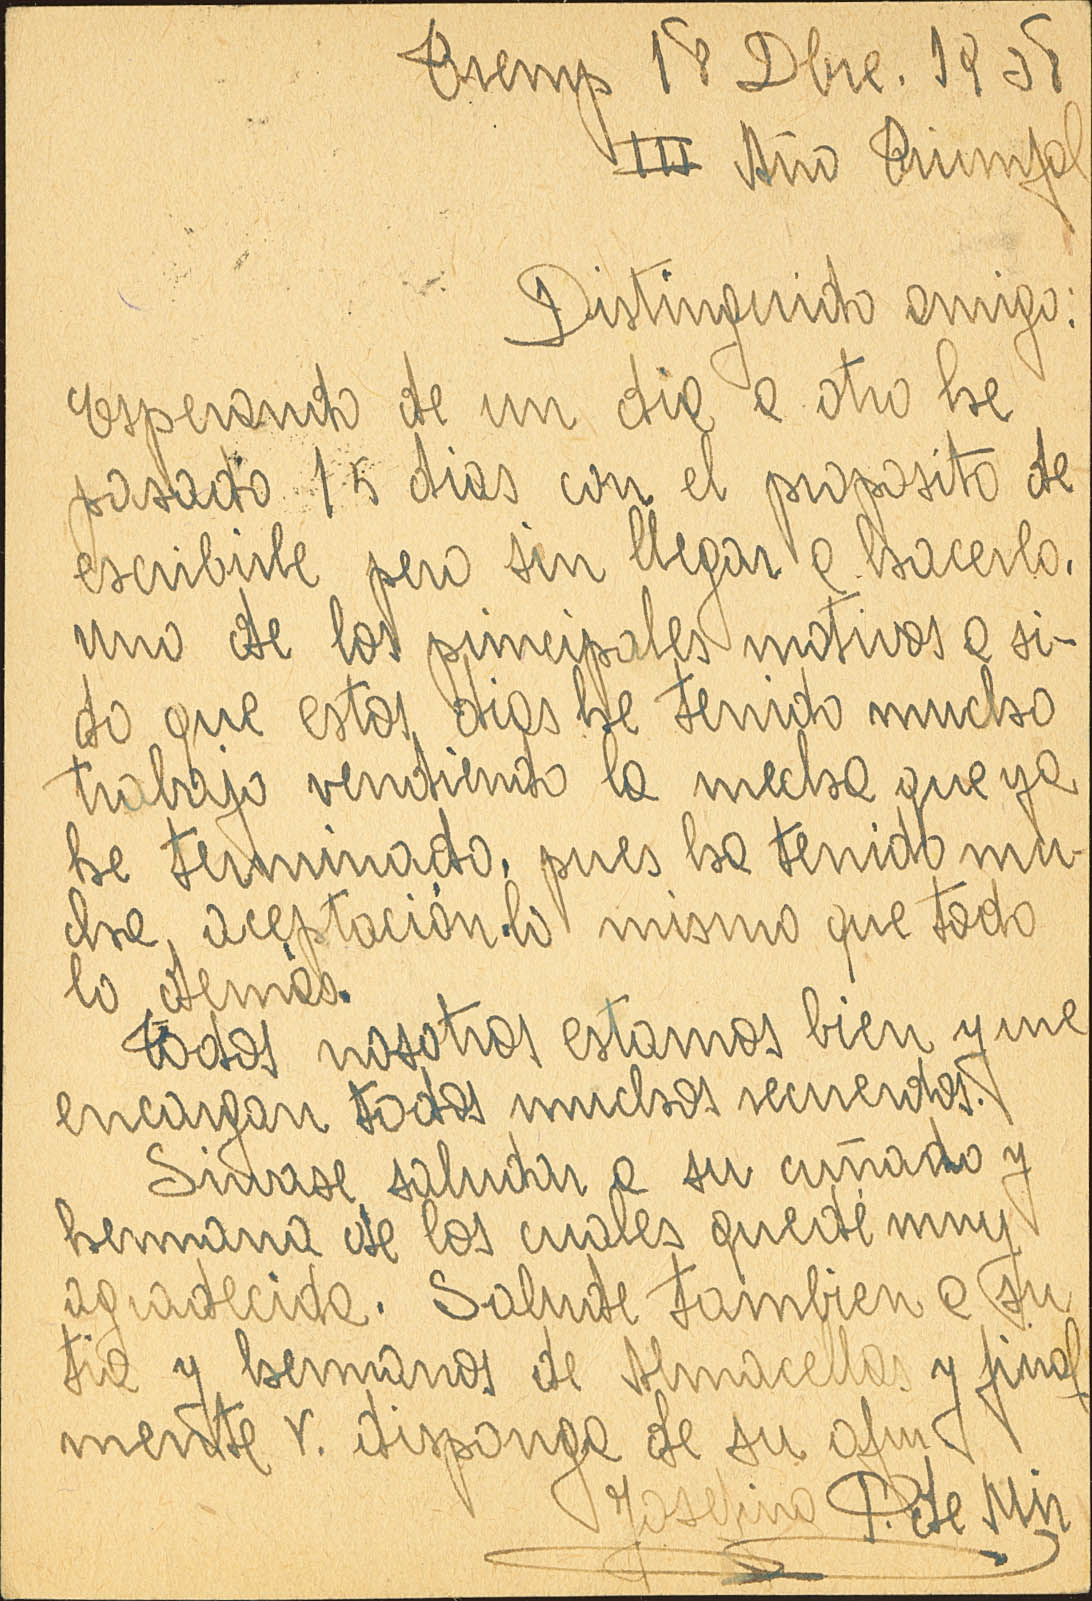 Tremp 18 Dbre. 1938
III Año Triunfal
Distinguido amigo:
Esperando de un dia a otro he
pasado 15 dias con el proposito de
escribirle pero sin llegar a hacerlo.
uno de los principales motivos a si-
do que estos dias he tenido mucho
trabajo vendiendo la mecha que ya
he terminado, pues ha tenido mu-
cha aceptación lo mismo que todo
lo demás.
Todos nosotros estamos bien y me
encargan todos muchos recuerdos.
Sirvase saludar a su cuñado y
hermana de los cuales quedé muy
agradecida. Salude tambien a su
tia y hermanos de Almacellas y final
mente V. disponga de su afm.
Josefina P. de Mir